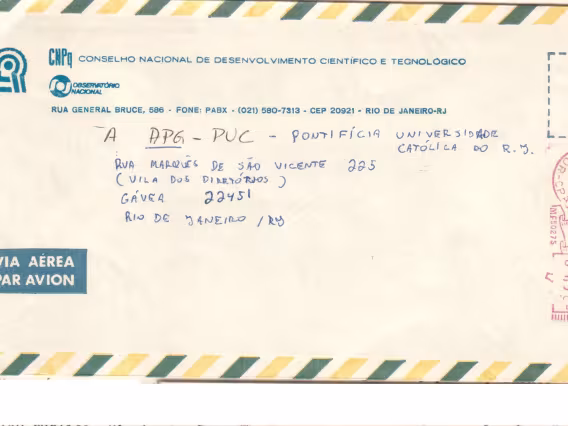 CNPq CONSELHO NACIONAL DE DESENVOLVIMENTO CIENTÍFICO E TECNOLÓGICO
OBSERVATÓRIO
NACIONAL
RUA GENERAL BRUCE, 586 - FONE: PABX - (021) 580-7313 - CEP 20921 - RIO DE JANEIRO-RJ
A APG - PUC - PONTIFÍCIA UNIVERSIDADE
CATÓLICA DO R.J.
RUA MARQUÊS DE SÃO VICENTE 225
(VILA DOS DIRETÓRIOS)
GÁVEA 22451
RIO DE JANEIRO / RJ
VIA AÉREA
PAR AVION